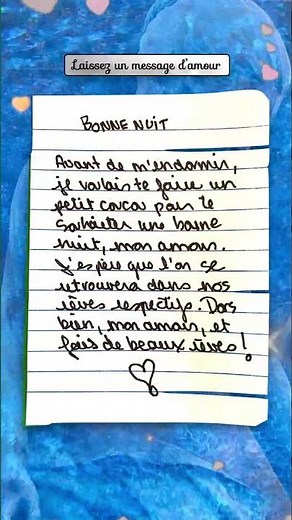 Laissez un message d'amour
BONNE NUIT
Avant de m'endormir,
je voulais te faire un
petit coucou pour te
souhaiter une bonne
nuit, mon amour.
J'espère que l'on se
retrouvera dans nos
rêves respectifs. Dors
bien, mon amour, et
fais de beaux rêves!